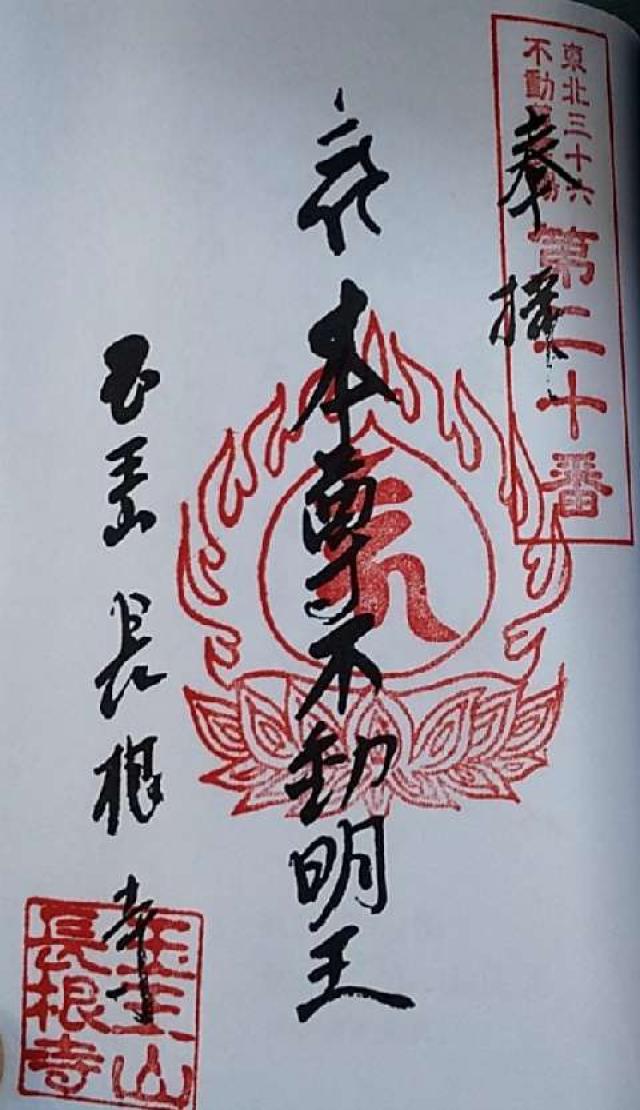 東北三十六
不動
第二十番
奉拝
本尊不動明王
玉王山 長根寺
玉王山
長根寺